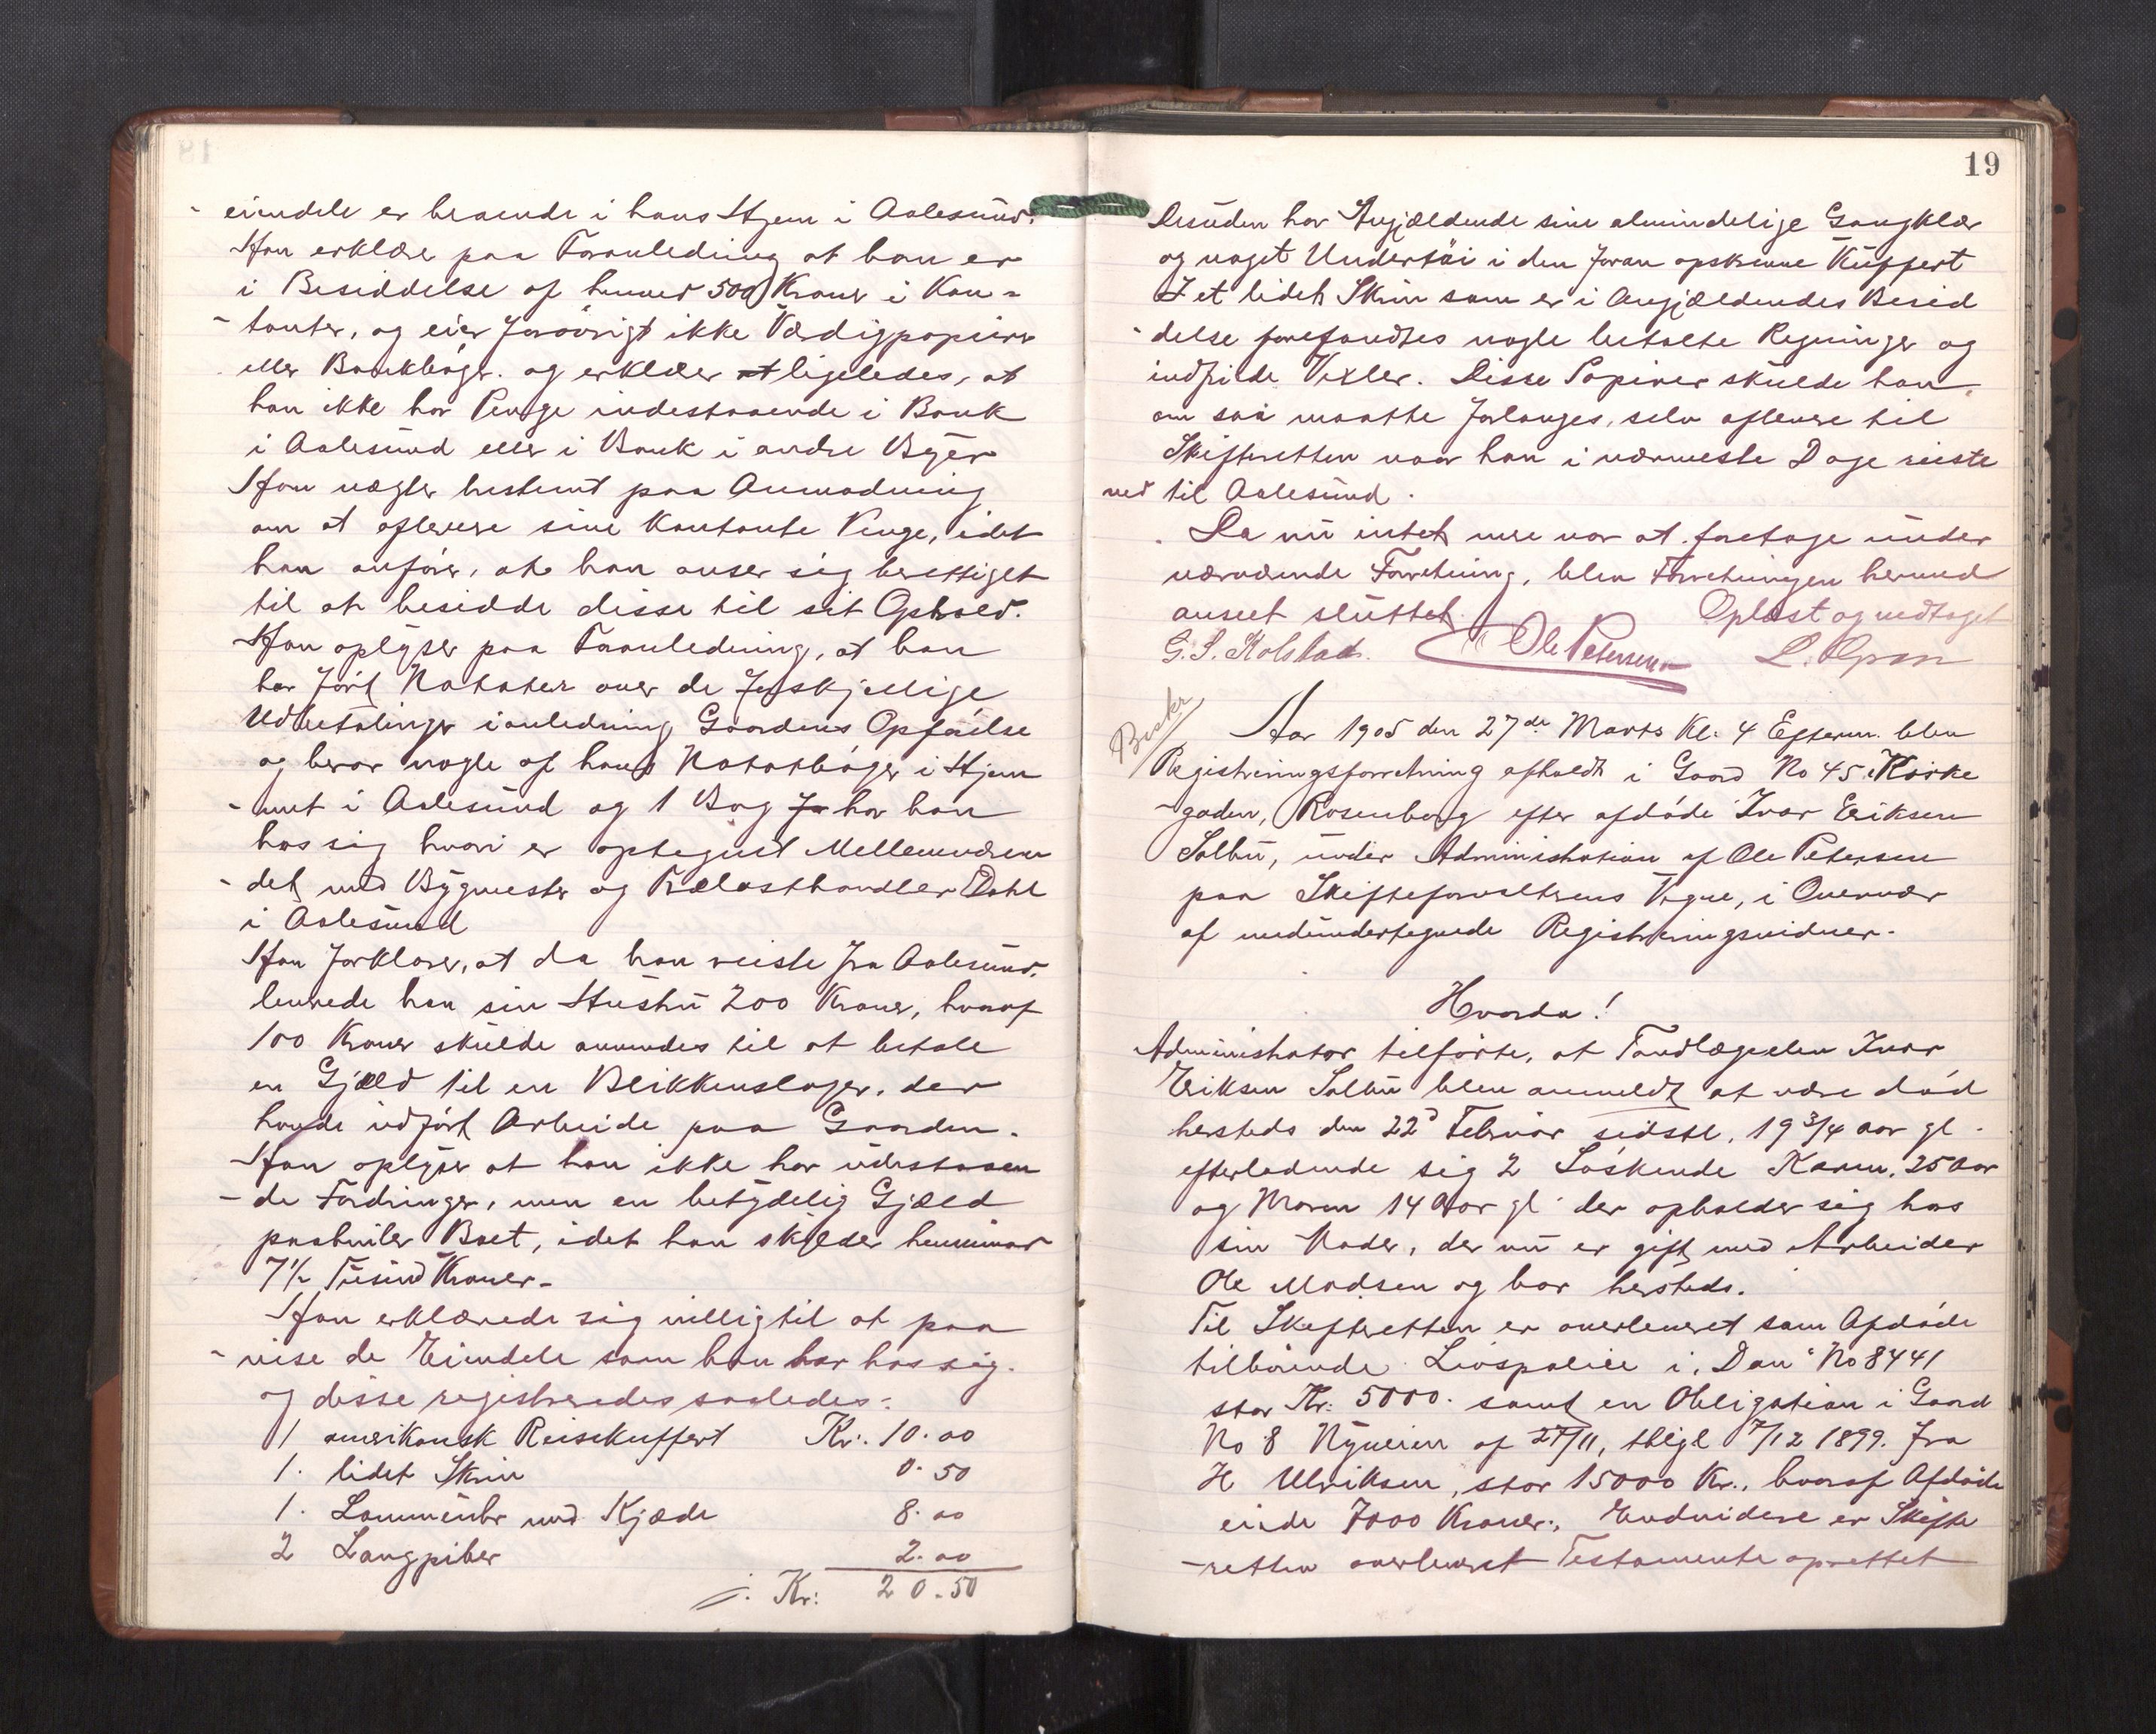 eiendele er beroende i hans Hjem i Aalesund.
Han erklærer paa Foranledning at han er
i Besiddelse af henved 500 Kroner i Kon-
tanter, og eier forøvrigt ikke Værdigpapirer
eller Bankbøger. og erklærer at ligeledes, at
han ikke har Penge indestaaende i Bank
i Aalesund eller i Bank i andre Byer
Han nægter bestemt paa Anmodning
om at aflevere sine Kontante Penge, idet
han anfører, at han anser sig berettiget
til at besidde disse til sit Ophold.
Han oplyser paa Foranledning, at han
har ført Notater over de forskjellige
Udbetalinger i anledning Gaardens Opførelse
og beror nogle af hans Notatbøger i Hjem
-met i Aalesund og 1 Bog har han
hos sig hvori er optegnet Mellemværen
-det med Bygmester og Trælasthandler Dahl
i Aalesund
Han forklarer, at da han reiste fra Aalesund.
levnede han sin Hustru 200 Kroner, hvoraf
100 Kroner skulde anvendes til at betale
en Gjæld til en Blikkenslager, der
havde udført Arbeide paa Gaarden.
Han oplyser at han ikke har udestaaen
-de Fordringer, men en betydelig Gjæld
paahviler Boet, idet han skylder henimod
7½ Tusind Kroner-
Han erklærede sig villig til at paa
-vise de Eiendele som han har hos sig.
og disse registreredes saaledes:
1 amerikansk Reisekuffert Kr. 10.00
1. lidet Skrin 0.50
1. Lommeuhr med Kjæde 8.00
2 Langpiber 2.00
Kr: 20.50
19
Desuden har Angjældende sine almindelige Gangklær
og noget Undertøi i den foran opskrevne Kuffert
I et lidet Skrin som er i Angjældendes Besid
-delse forefandtes nogle betalte Regninger og
indfriede Vexler. Disse Papirer skulde han,
om saa maatte forlanges, selv aflevere til
Skifteretten naar han i nærmeste Dage reiste
ned til Aalesund.
Da nu intet mere var at foretage under
nærværende Forretning, blev Forretningen hermed
anseet sluttet. Oplæst og vedtaget
G. S. Kolstad. Ole Petersen L. Opsan
Beskr
Aar 1905 den 27de Marts Kl. 4 Efterm. blev
Registreringsforretning afholdt i Gaard No 45 i Kirke
-gaden, Rosenberg efter afdøde Ivar Eriksen
Solbu, under Administration af Ole Petersen
paa Skifteforvalterens Vegne, i Overvær
af medundertegnede Registreringsvidner.
Hvorda!
Administrator tilførte, at Tandlægeelev Ivar
Eriksen Solbu blev anmeldt at være død
hersteds den 22d Februar sidstl. 19 3/4 aar gl.
efterladende sig 2 Søskende Karen, 25 Aar
og Maren 14 Aar gl. der opholder sig hos
sin Moder, der nu er gift med Arbeider
Ole Madsen og bor hersteds.
Til Skifteretten er overleveret som Afdøde
tilhørende Livspolice i "Dan" No 8441
stor Kr. 5000. samt en Obligation i Gaard
No 8 Nyveien af 27/11, thlgl 7/12 1899. fra
H Ulriksen, stor 15000 Kr., hvoraf Afdøde
eiede 7000 Kroner., Endvidere er Skifte
-retten overleveret Testamente oprettet